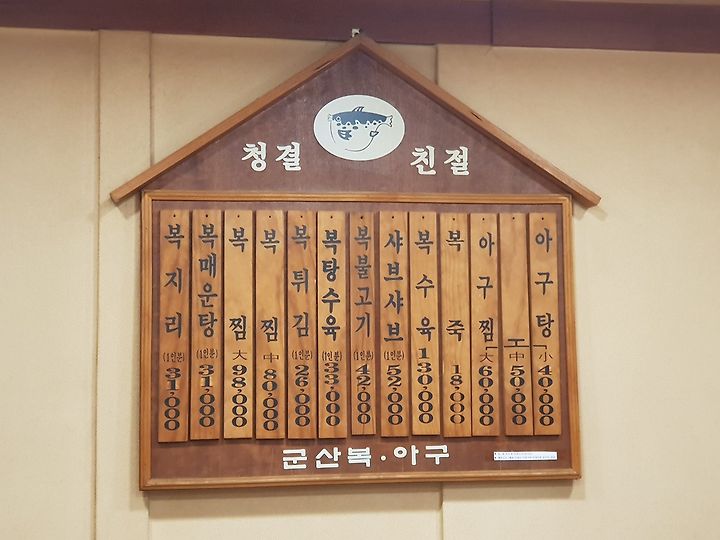 청결 친절
복지리 (1인분) 31,000
복매운탕 (1인분) 31,000
복찜 大 98,000
복찜 中 80,000
복튀김 (1인분) 26,000
복탕수육 (1인분) 33,000
복불고기 (1인분) 42,000
샤브샤브 (1인분) 52,000
복수육 130,000
복죽 18,000
아구찜 大 60,000
中 50,000
아구탕 小 40,000
군산복·아구